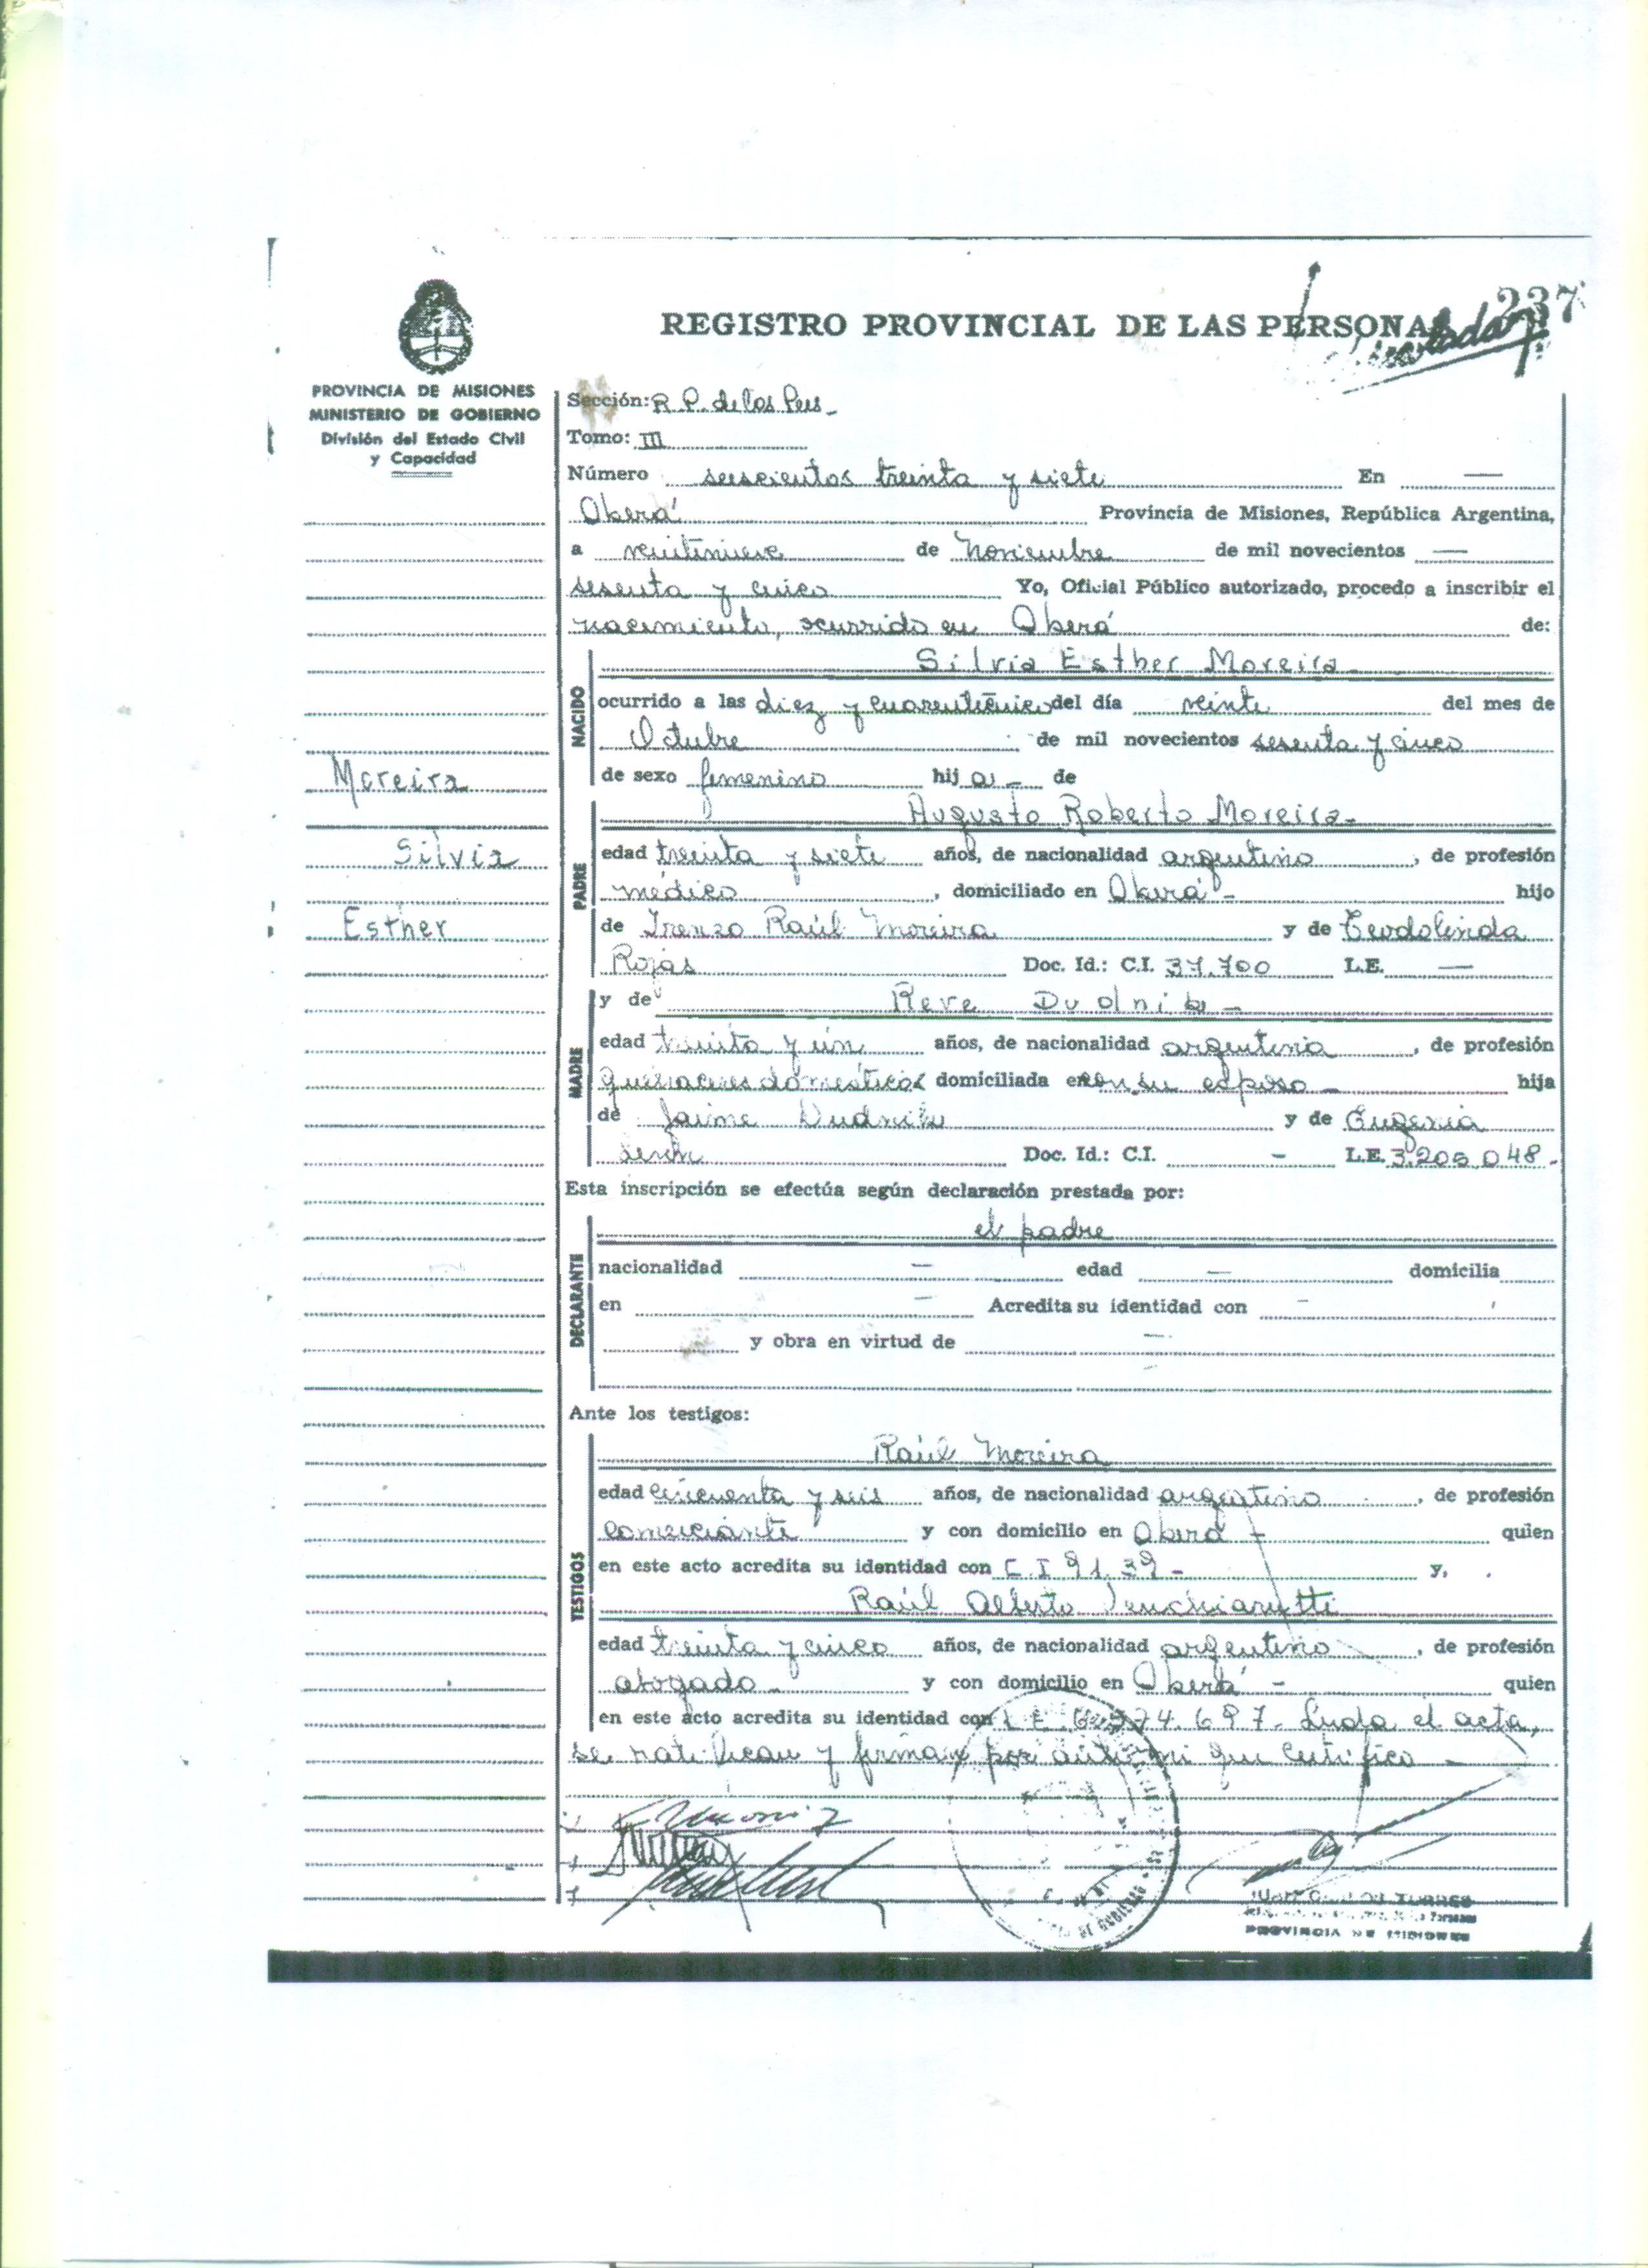 237
REGISTRO PROVINCIAL DE LAS PERSONA
PROVINCIA DE MISIONES
MINISTERIO DE GOBIERNO
División del Estado Civil
y Capacidad
Sección: R. P. de las Pers.-
Tomo: III
Número seiscientos treinta y siete En —
Oberá Provincia de Misiones, República Argentina,
a veintinueve de Noviembre de mil novecientos —
sesenta y cinco Yo, Oficial Público autorizado, procedo a inscribir el
nacimiento, ocurrido en Oberá de:
NACIDO
Silvia Esther Moreira
ocurrido a las diez y cuarenticinco del día veinte del mes de
Octubre de mil novecientos sesenta y cinco
de sexo femenino hij a - de
Moreira
Silvia
Esther
PADRE
Augusto Roberto Moreira-
edad treinta y siete años, de nacionalidad argentino, de profesión
médico, domiciliado en Oberá - hijo
de Irenzo Raúl Moreira y de Teodolinda
Rojas Doc. Id.: C.I. 37.700 L.E. —
MADRE
y de Reve Dudnik -
edad treinta y un años, de nacionalidad argentina, de profesión
quehaceres domésticos domiciliada en con su esposo - hija
de Jaime Dudnik y de Eugenia
Doc. Id.: C.I. - L.E. 3.205.048.-
Esta inscripción se efectúa según declaración prestada por:
DECLARANTE
el padre
nacionalidad — edad — domicilia
en — Acredita su identidad con -
y obra en virtud de —
Ante los testigos:
TESTIGOS
Raúl Moreira
edad cincuenta y seis años, de nacionalidad argentino, de profesión
comerciante y con domicilio en Oberá - quien
en este acto acredita su identidad con C.I 91.39 - y,
Raúl Alberto
edad treinta y cinco años, de nacionalidad argentino, de profesión
abogado - y con domicilio en Oberá - quien
en este acto acredita su identidad con L.E. Leída el acta,
se ratifican y firman por ante mi que certifico -
TORRES
PROVINCIA DE MISIONES